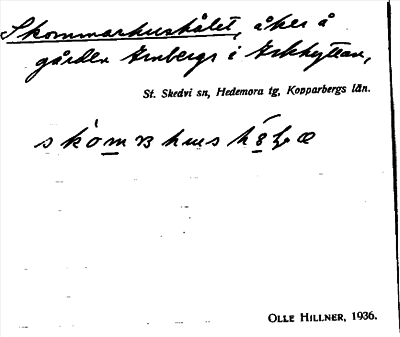 Skommarhushålet, åker å
gården Arnbergs i Askhyttan,
St. Skedvi sn, Hedemora tg, Kopparbergs län.
OLLE HILLNER, 1936.